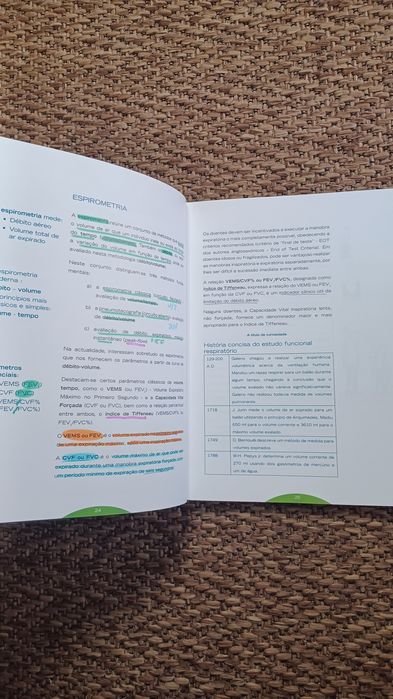 espirometria mede:
• Débito aéreo
• Volume total de
ar expirado
espirometria
derna :
bito - volume
princípios mais
ssicos e simples:
ume - tempo
metros
ciais:
VEMS (FEV₁)
CVF (FVC)
VEMS/CVF%
FEV₁/FVC%)
ESPIROMETRIA
A espirometria reúne um conjunto de métodos que
o volume de ar que um indivíduo inala ou exala em função
do tempo
a variação do volume em função do tempo
avaliado nesta metodologia (débito/volume).
Neste conjunto distinguem-se três métodos
mentais:
a) a espirometria clássica
avaliação de volume/tempo,
b) a pneumotacografia
de débito/volume
c) avaliação de débito expiratório máximo
instantâneo (peak-flow)
Na actualidade, interessam sobretudo os espirómetros
que nos fornecem os parâmetros a partir de curvas de
débito-volume.
Destacam-se certos parâmetros clássicos de volume
tempo, como o VEMS (ou FEV₁) - Volume Expiratório
Máximo no Primeiro Segundo - e a Capacidade Vital
Forçada (CVF ou FVC), bem como a relação percentual
entre ambos, o índice de Tiffeneau (VEMS/CVF% ou
FEV₁/FVC%).
O VEMS ou FEV₁ é o volume expirado no primeiro segundo
de uma expiração máxima, após uma inspiração máxima.
A CVF ou FVC é o volume máximo de ar que pode ser
expirado durante uma manobra expiratória forçada com
um período mínimo de expiração de seis segundos.
24
Os doentes devem ser incentivados a executar a manobra
expiratória o mais completamente possível, obedecendo a
critérios recomendados (critério de "final de teste" - EOT
dos autores anglosaxónicos - End of Test Criteria). Em
doentes idosos ou fragilizados, pode ser vantajoso realizar
as manobras inspiratória e expiratória separadamente, por
lhes ser difícil a sucessão imediata entre ambas.
A relação VEMS/CVF% ou FEV₁/FVC%, designada como
índice de Tiffeneau, expressa a relação do VEMS ou FEV₁
em função da CVF ou FVC, é um indicador clínico útil de
limitação do débito aéreo.
Naguns doentes, a Capacidade Vital Inspiratória lenta,
não forçada, fornece um denominador maior e mais
apropriado para o índice de Tiffeneau.
A título de curiosidade
História concisa do estudo funcional
respiratório
129-200
A.D
Galeno chegou a realizar uma experiência
volumétrica acerca da ventilação humana.
Mandou um rapaz respirar para um balão durante
algum tempo, chegando à conclusão que o
volume exalado não variava significativamente.
Galeno não realizou todavia medidas de volumes
pulmonares.
1718
J. Jurin mede o volume de ar soprado para um
balão utilizando o princípio de Arquimedes. Mediu
650 ml para o volume corrente e 3610 ml para o
máximo volume exalado.
1749
D. Bernoulli descreve um método de medida para
volumes expirados.
1788
270 ml usando dois gasómetros de mercúrio e
um de água.
25